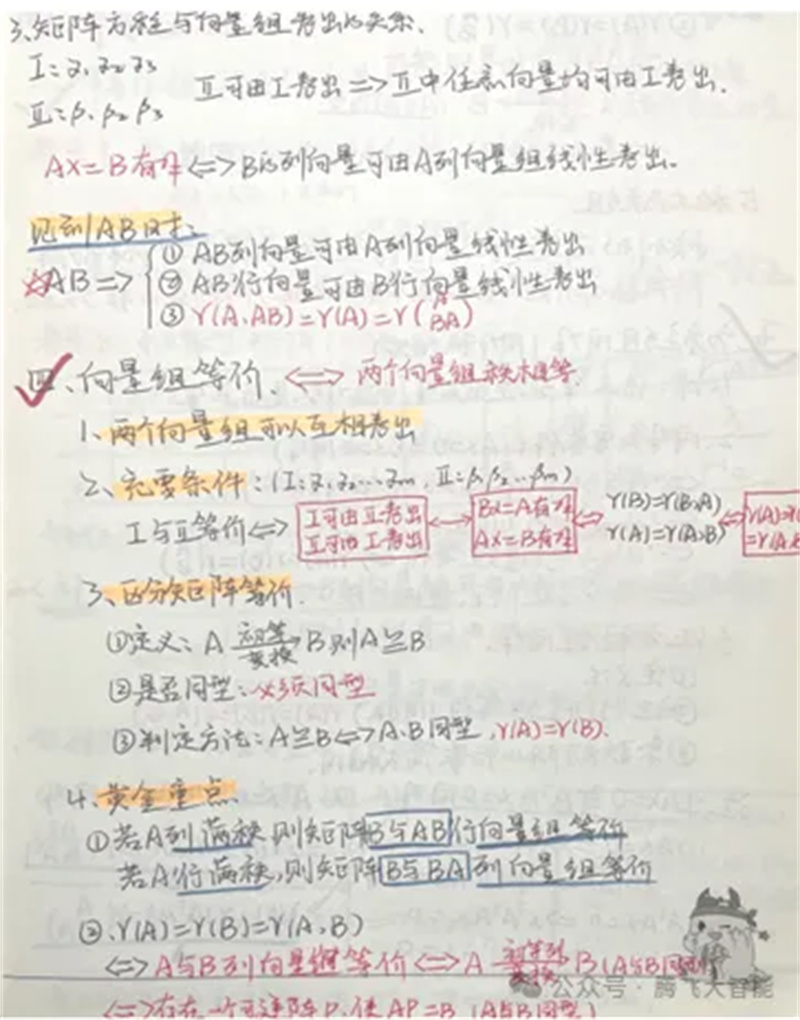 3、矩阵方程与向量组表出的关系.
I=α₁,α₂,α₃
II可由I表出=>II中任意向量均可由I表出.
II=β₁,β₂,β₃
AX=B有解<=>B的列向量可由A列向量组线性表出.
见到AB时:
☆AB=>
①AB列向量可由A列向量线性表出
②AB行向量可由B行向量线性表出
③r(A,AB)=r(A)=r(A BA)
四、向量组等价 <=> 两个向量组秩相等.
1、两个向量组可以互相表出
2、充要条件:(I:α₁,α₂…αm,II:β₁,β₂…βm)
I与II等价<=> I可由II表出 II可由I表出 <-> BX=A有解 AX=B有解 <=> r(B)=r(B,A) r(A)=r(A,B) <=>
3、区分矩阵等价.
①定义:A 初等变换→B,则A≌B
②是否同型:必须同型
③判定方法:A≌B<=>A、B同型,r(A)=r(B).
4、黄金重点.
①若A列满秩,则矩阵B与AB行向量组等价
若A行满秩,则矩阵B与BA列向量组等价
②、r(A)=r(B)=r(A,B)
<=>A与B列向量组等价<=>A 初等列变换 B(A与B同型)
<=>存在一个可逆阵P,使AP=B(A与B同型)
公众号·腾飞大智能